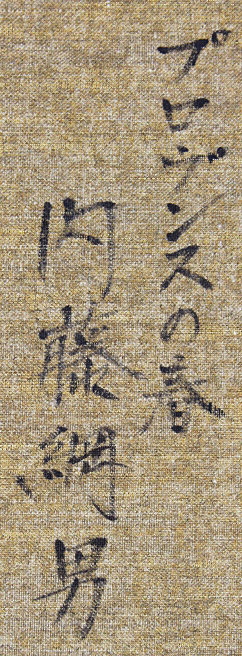 プロヴンスの春
内藤綱男